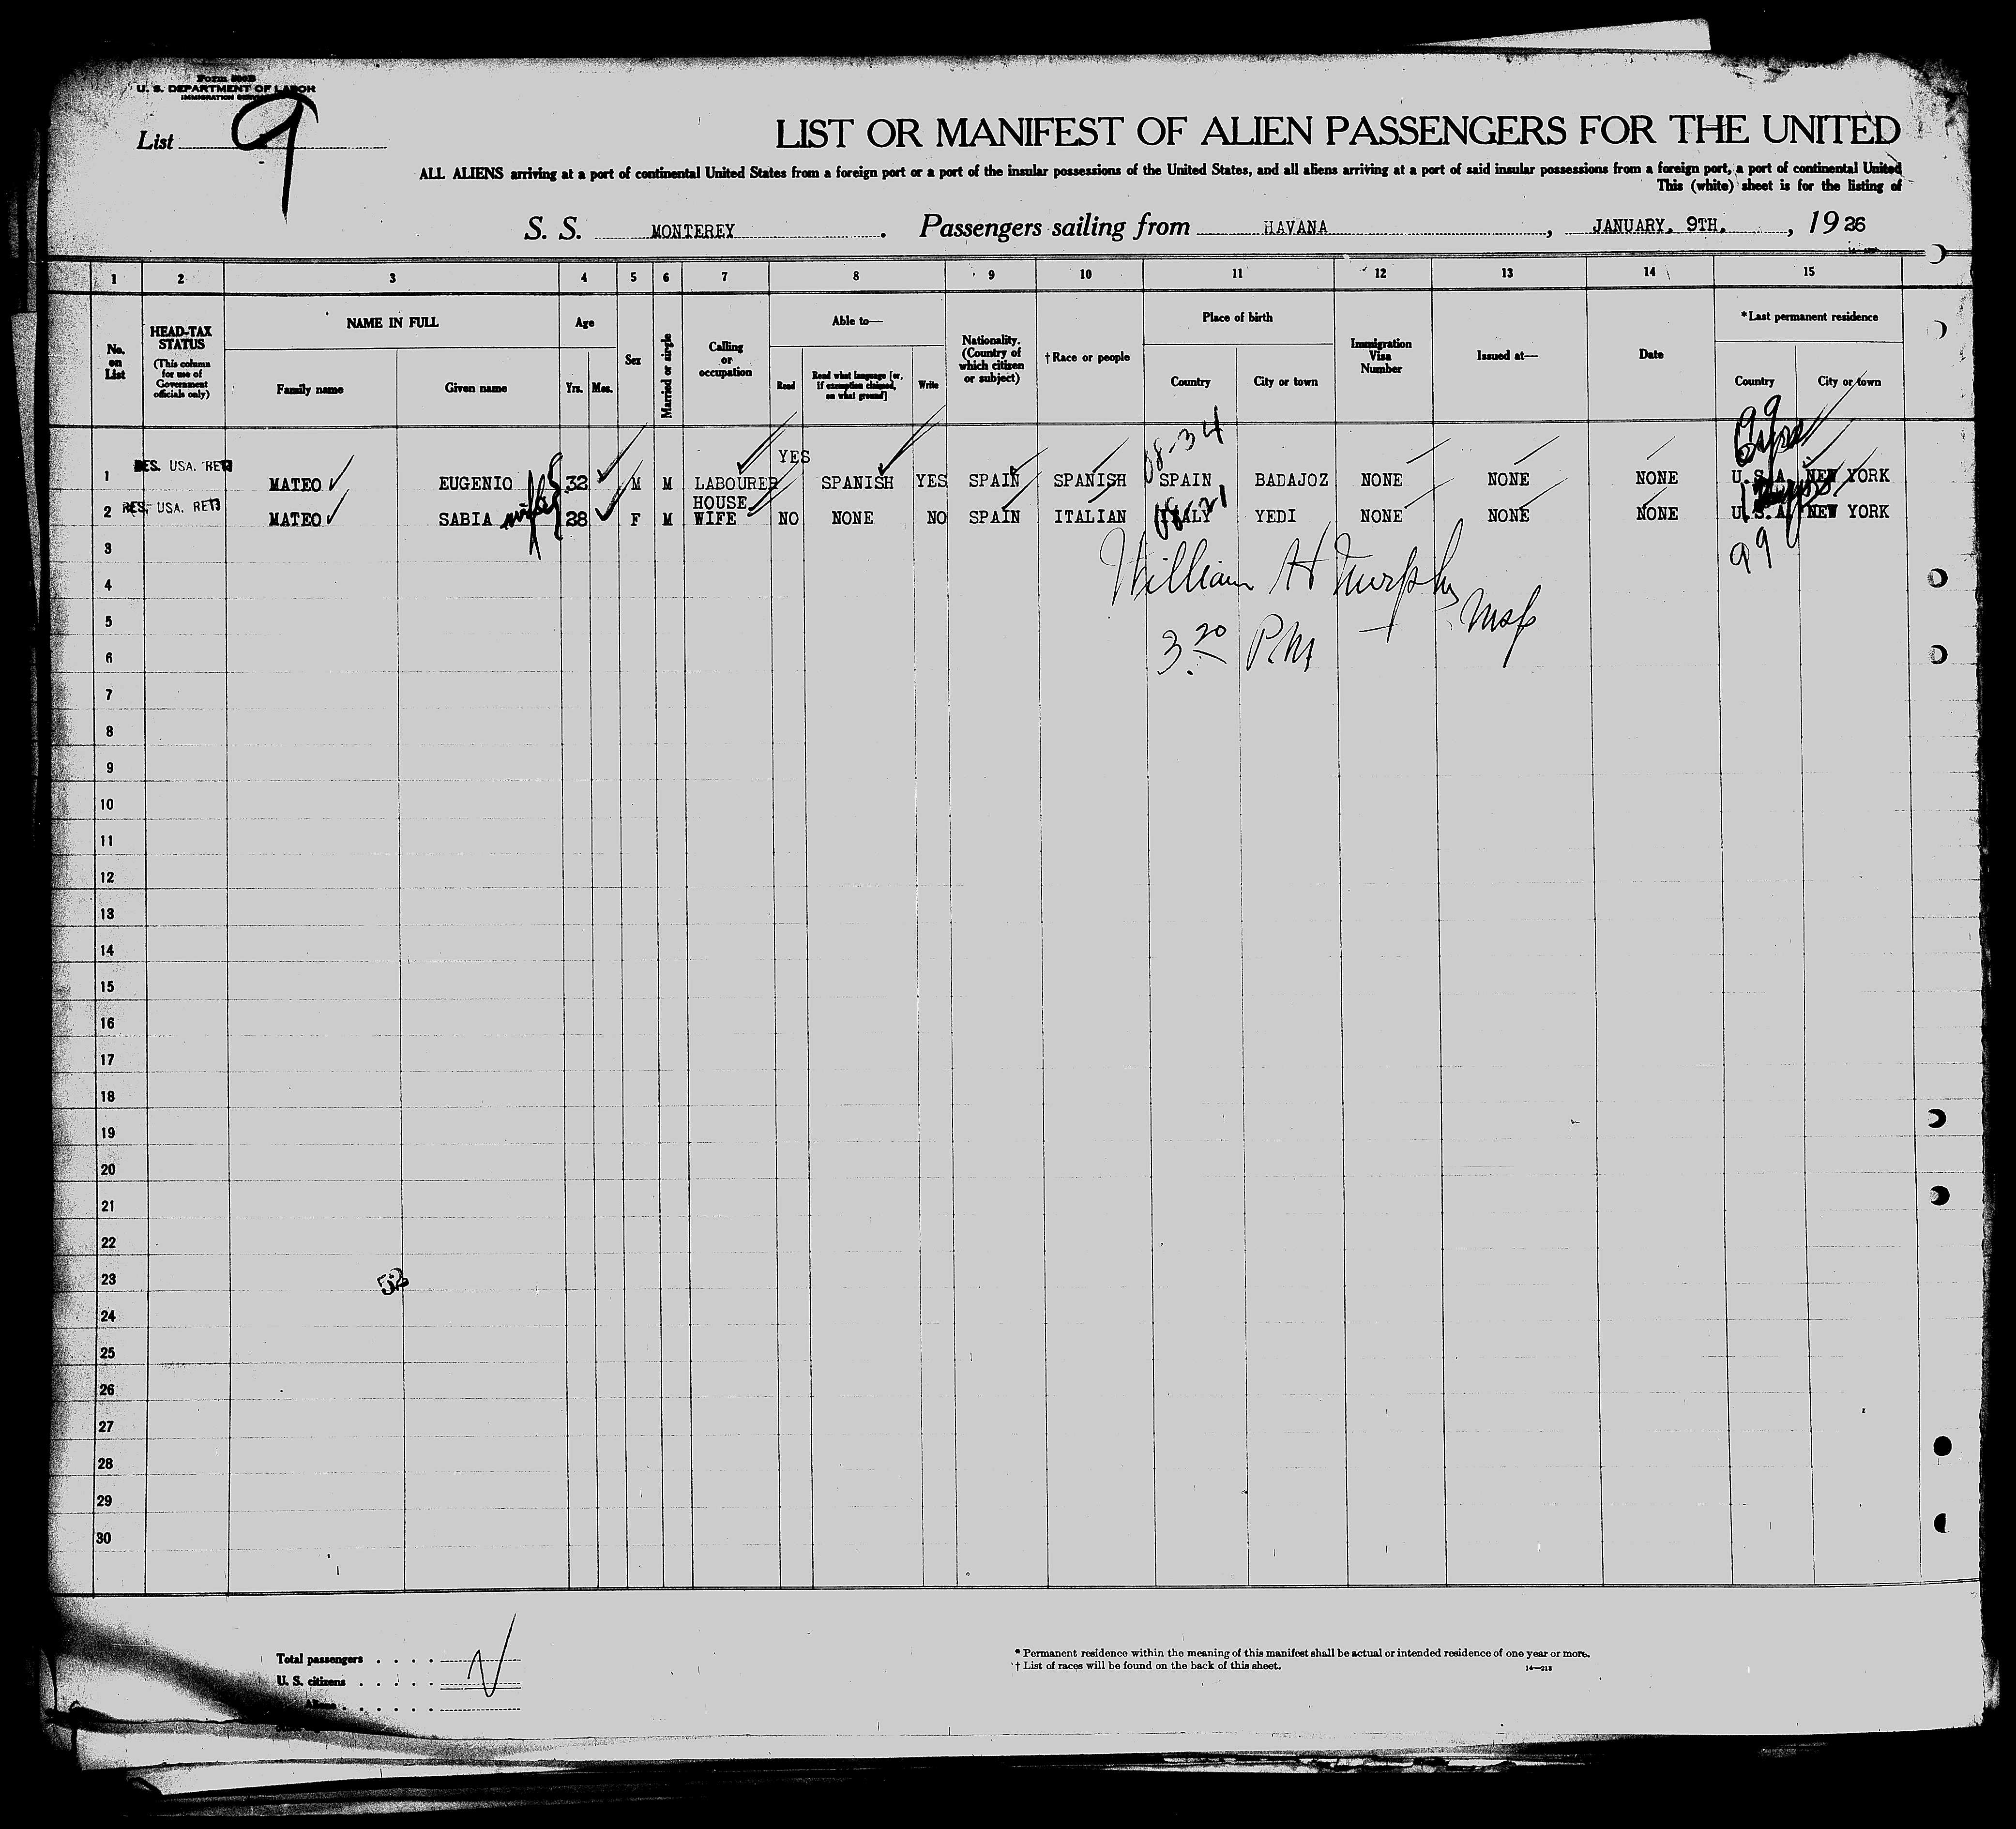 U. S. DEPARTMENT OF LABOR
List 9
LIST OR MANIFEST OF ALIEN PASSENGERS FOR THE UNITED
ALL ALIENS arriving at a port of continental United States from a foreign port or a port of the insular possessions of the United States, and all aliens arriving at a port of said insular possessions from a foreign port, a port of continental United
This (white) sheet is for the listing of
S. S. MONTEREY. Passengers sailing from HAVANA, JANUARY. 9TH., 1926
1 2 3 4 5 6 7 8 9 10 11 12 13 14 15
No. on List
HEAD-TAX STATUS (This column for use of Government officials only)
NAME IN FULL
Family name Given name
Age
Yrs. Mos.
Sex
Married or single
Calling or occupation
Able to—
Read Read what language [or, if exemption claimed, on what ground] Write
Nationality. (Country of which citizen or subject)
† Race or people
Place of birth
Country City or town
Immigration Visa Number
Issued at—
Date
* Last permanent residence
Country City or town
99
08-34
1 RES. USA. RET MATEO EUGENIO 32 M M LABOURER YES SPANISH YES SPAIN SPANISH SPAIN BADAJOZ NONE NONE NONE U.S.A. NEW YORK
08-21
2 RES. USA. RET MATEO SABIA wife 28 F M HOUSE WIFE NO NONE NO SPAIN ITALIAN ITALY YEDI NONE NONE NONE U.S.A. NEW YORK
3
99
4
William H Murphy
5
6
3.20 PM
7
8
9
10
11
12
13
14
15
16
17
18
19
20
21
22
23
52
24
25
26
27
28
29
30
Total passengers . . . .
U. S. citizens . . . . .
Aliens . . . . . .
* Permanent residence within the meaning of this manifest shall be actual or intended residence of one year or more.
† List of races will be found on the back of this sheet.
14—213